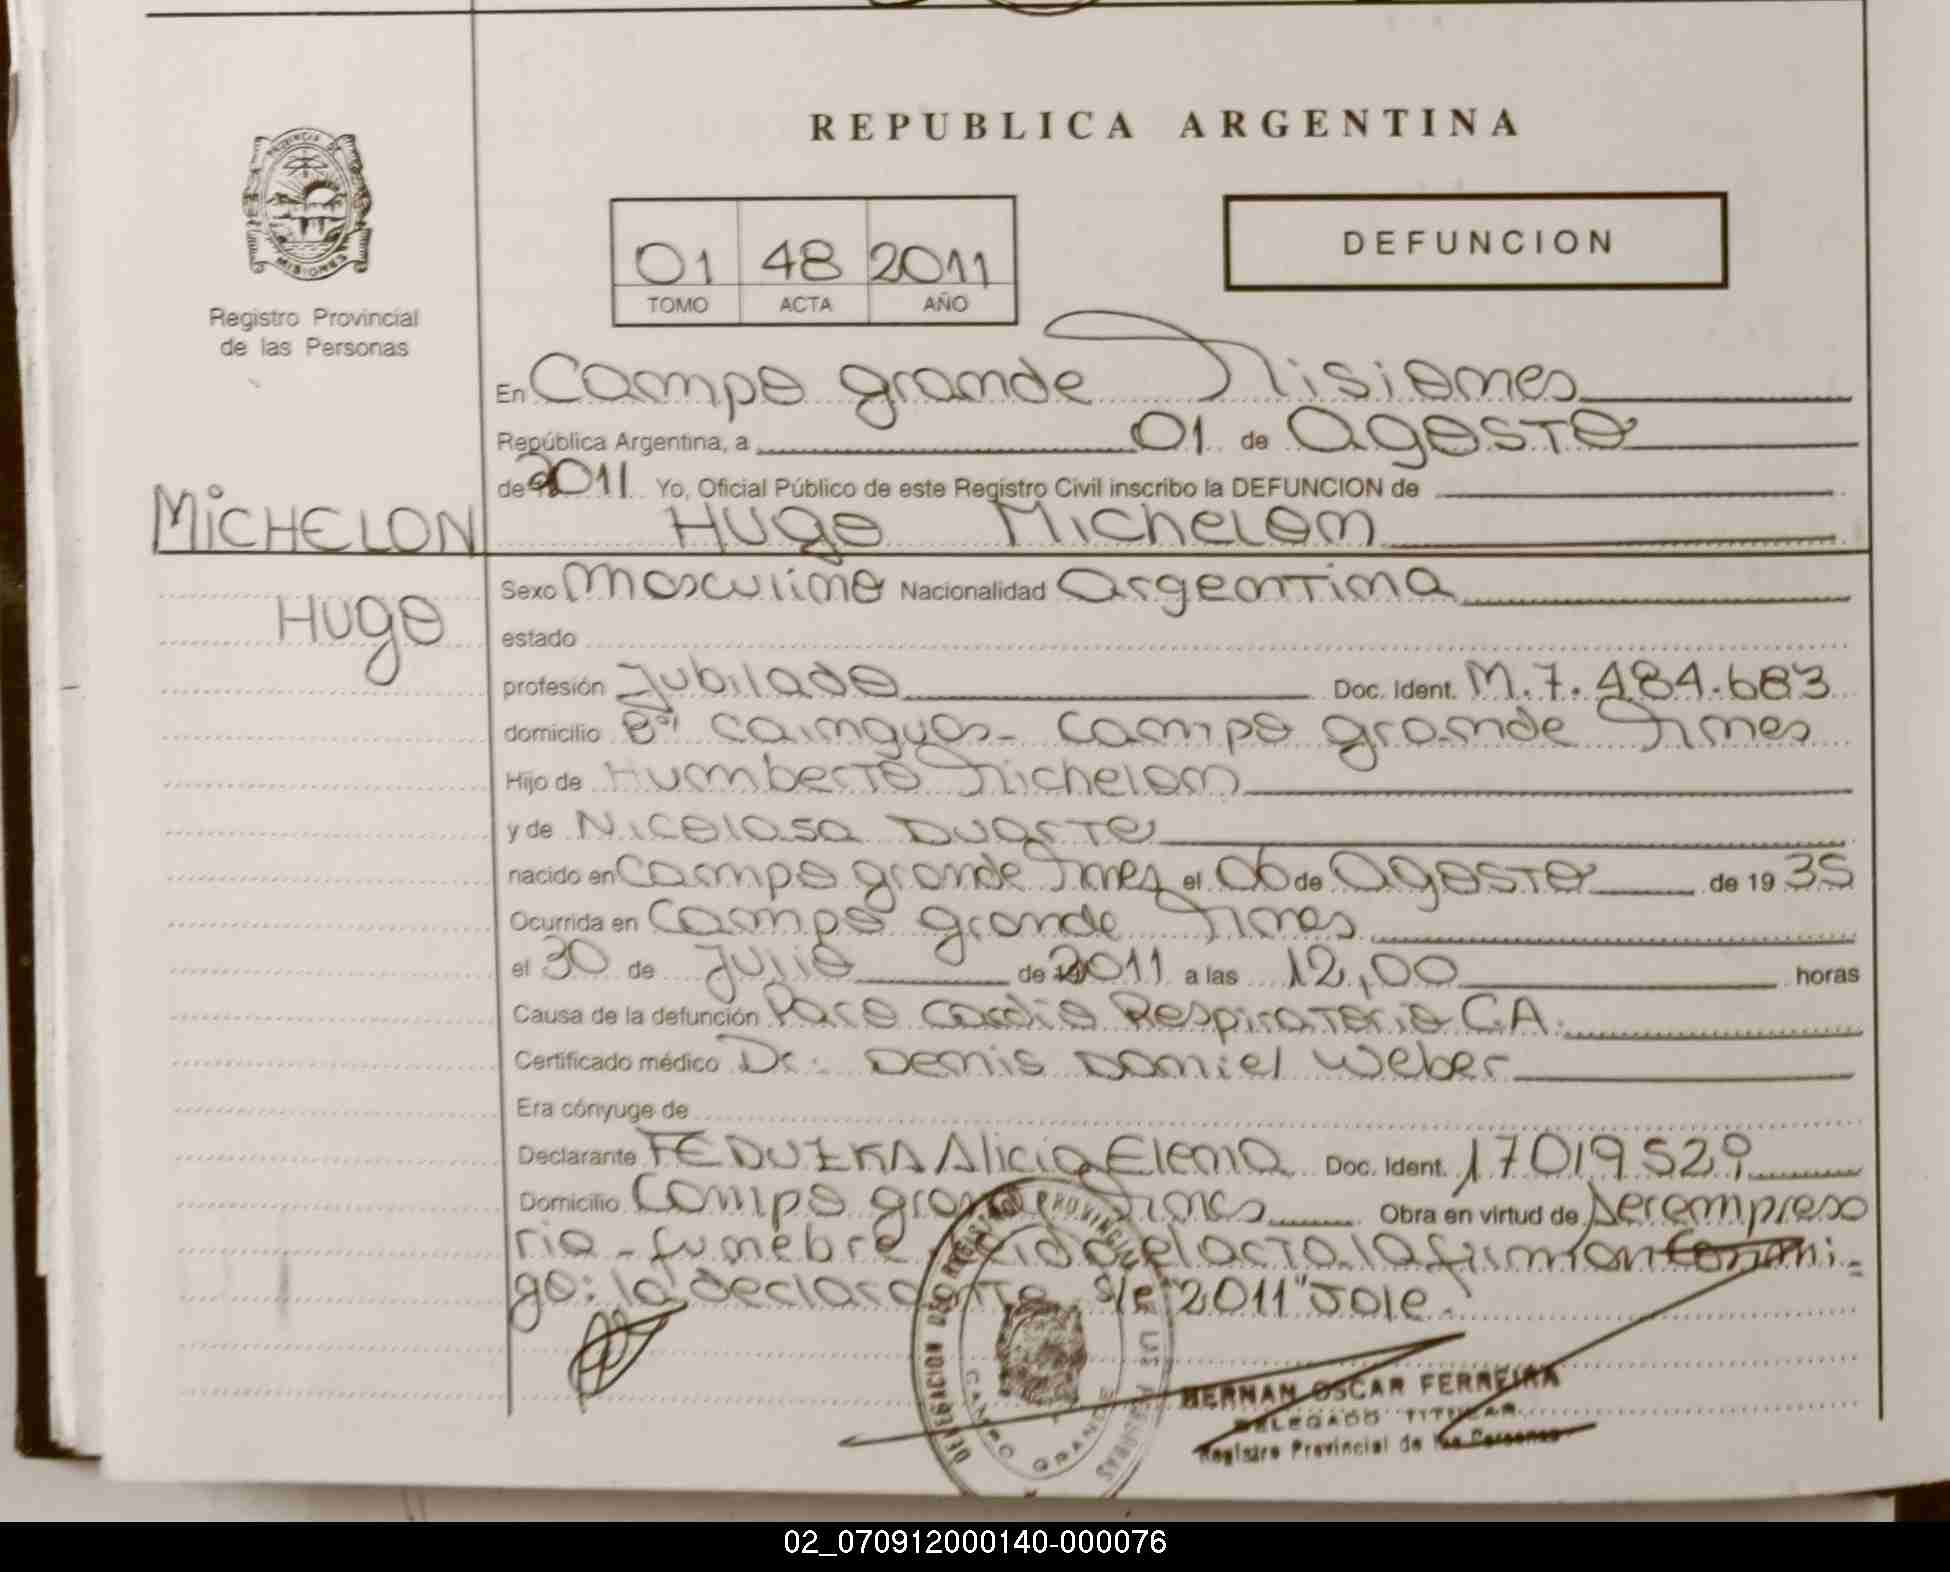 REPUBLICA ARGENTINA
PROVINCIA DE
MISIONES
Registro Provincial
de las Personas
01 48 2011
TOMO ACTA AÑO
DEFUNCION
En Campo grande Misiones
República Argentina, a 01 de Agosto
de 2011 Yo, Oficial Público de este Registro Civil inscribo la DEFUNCION de
MICHELON Hugo Michelon
Hugo
Sexo Masculino Nacionalidad Argentina
estado
profesión Jubilado Doc. Ident. M.7.484.683
domicilio Bº Cainguas - Campo grande Mnes
Hijo de Humberto Michelon
y de Nicolasa Duarte
nacido en Campo grande Mnes el 06 de Agosto de 19 35
Ocurrida en Campo grande Mnes
el 30 de Julio de 2011 a las 12,00 horas
Causa de la defunción Paro Cardio Respiratorio C.A.
Certificado médico Dr: Denis Daniel Weber
Era cónyuge de
Declarante FEDUZKA Alicia Elena Doc. Ident. 17019529
Domicilio Campo grande Mnes Obra en virtud de ser empresa
ria - funebre. Leida el acta la firman conmi-
go: la declarante s/r "2011" Vale.
DELEGACION DEL REGISTRO PROVINCIAL DE LAS PERSONAS
CAMPO GRANDE
HERNAN OSCAR FERREIRA
DELEGADO TITULAR
Registro Provincial de las Personas
02_070912000140-000076